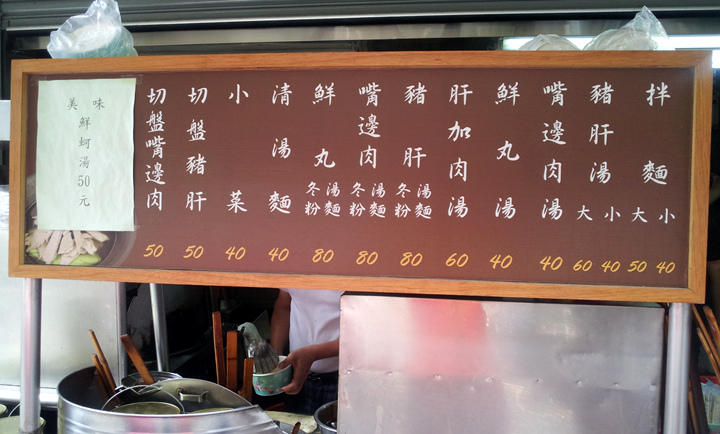 拌麵 大 小 50 40
豬肝湯 大 小 60 40
嘴邊肉湯 40
鮮丸湯 40
肝加肉湯 60
豬肝 湯麵 冬粉 80
嘴邊肉 湯麵 冬粉 80
鮮丸 湯麵 冬粉 80
清湯麵 40
小菜 40
切盤豬肝 50
切盤嘴邊肉 50
美味
鮮蚵湯50元